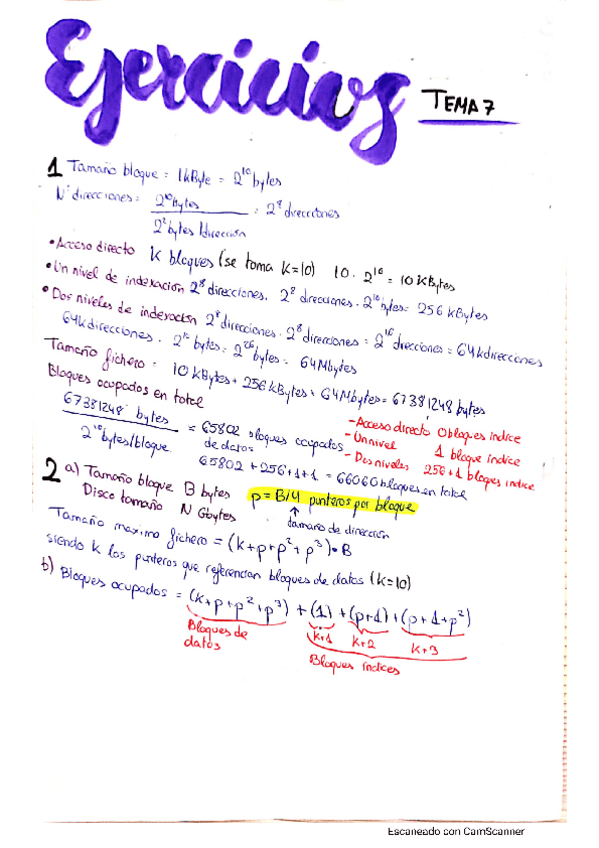 Ejercicios TEMA 7
1 Tamaño bloque = 1kByte = 2^10 bytes
Nº direcciones = 2^10 bytes / 2^2 bytes/dirección = 2^8 direcciones
• Acceso directo K bloques (se toma K=10) 10 · 2^10 = 10 KBytes
• Un nivel de indexación 2^8 direcciones. 2^8 direcciones · 2^10 bytes = 256 kBytes
• Dos niveles de indexación 2^8 direcciones · 2^8 direcciones = 2^16 direcciones = 64k direcciones
64k direcciones · 2^10 bytes = 2^26 bytes = 64 Mbytes
Tamaño fichero = 10 kBytes + 256 kBytes + 64 Mbytes = 67381248 bytes
Bloques ocupados en total
67381248 bytes / 2^10 bytes/bloque = 65802 bloques ocupados de datos
- Acceso directo 0 bloques índice
- Un nivel 1 bloque índice
- Dos niveles 256+1 bloques índice
65802 + 256+1+1 = 66060 bloques en total
2 a) Tamaño bloque B bytes p = B/4 punteros por bloque
Disco tamaño N Gbytes ↑ tamaño de dirección
Tamaño maximo fichero = (k+p+p^2+p^3)·B
siendo k los punteros que referencian bloques de datos (k=10)
b) Bloques ocupados = (k+p+p^2+p^3) + (1) + (p+1) + (p+1+p^2)
Bloques de datos
k+1 k+2 k+3
Bloques índices
Escaneado con CamScanner